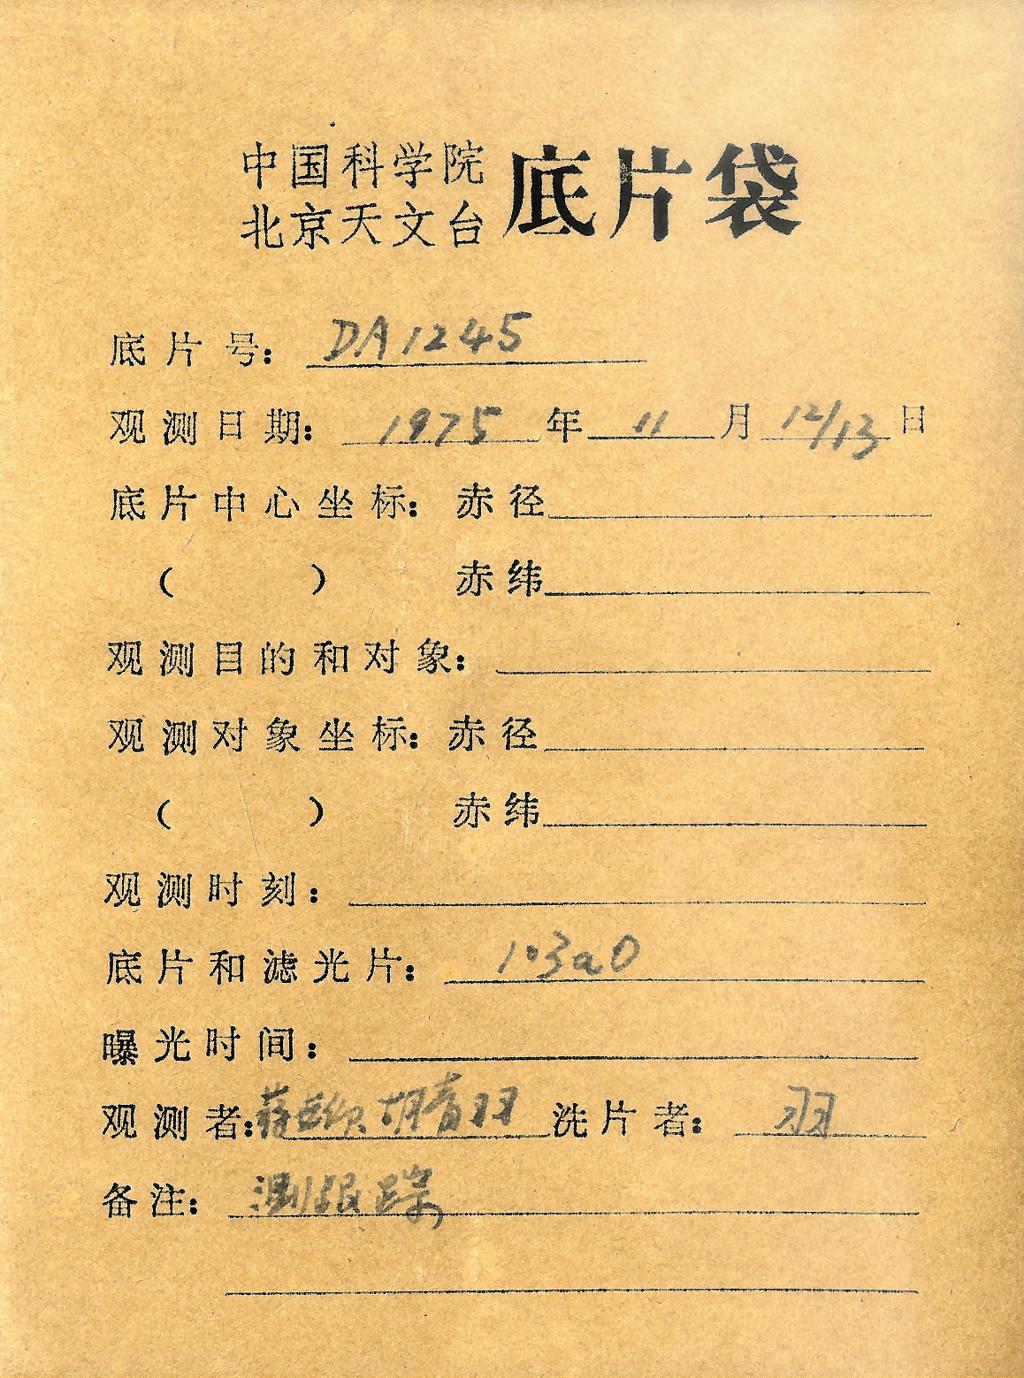 中国科学院
北京天文台
底片袋
底片号：DA1245
观测日期：1975年11月12/13日
底片中心坐标：赤径
（ ） 赤纬
观测目的和对象：
观测对象坐标：赤径
（ ） 赤纬
观测时刻：
底片和滤光片：103aO
曝光时间：
观测者：蒋 胡育羽 洗片者：羽
备注：测跟踪